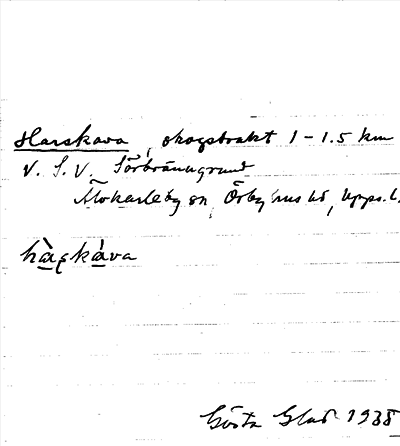 Harskava, skogstrakt 1 - 1.5 km
V. S. V. Sörbränngrund
Älvkarleby sn, Örbyhus hd, Upps. l.
hàʂkáva
Gösta Glad 1938